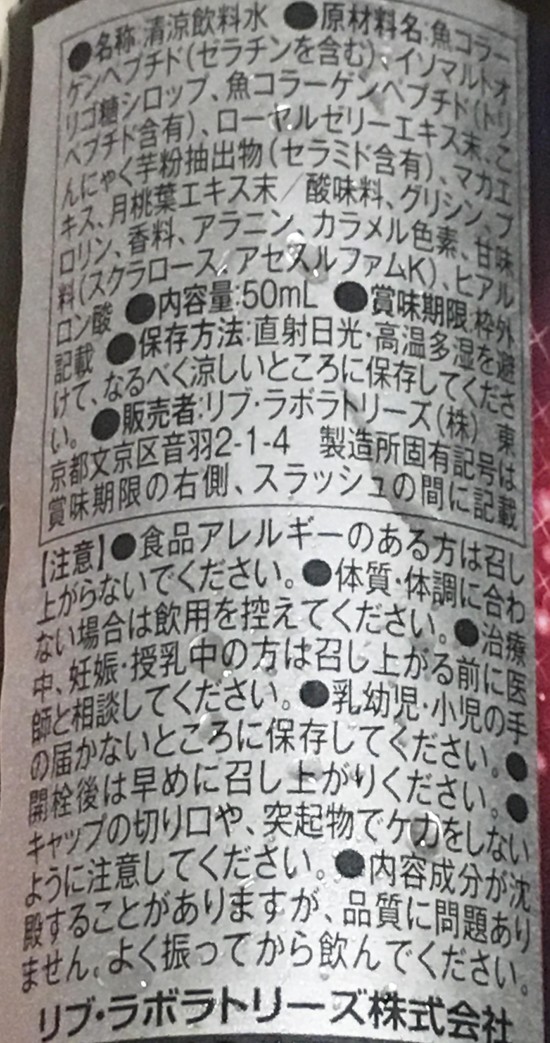 ●名称:清涼飲料水 ●原材料名:魚コラー
ゲンペプチド(ゼラチンを含む)、イソマルトオ
リゴ糖シロップ、魚コラーゲンペプチド(トリ
ペプチド含有)、ローヤルゼリーエキス末、こ
んにゃく芋粉抽出物(セラミド含有)、マカエ
キス、月桃葉エキス末/酸味料、グリシン、プ
ロリン、香料、アラニン、カラメル色素、甘味
料(スクラロース、アセスルファムK)、ヒアル
ロン酸 ●内容量:50mL ●賞味期限:枠外
記載 ●保存方法:直射日光・高温多湿を避
けて、なるべく涼しいところに保存してくださ
い。 ●販売者:リブ・ラボラトリーズ(株) 東
京都文京区音羽2-1-4 製造所固有記号は
賞味期限の右側、スラッシュの間に記載
【注意】●食品アレルギーのある方は召し
上がらないでください。●体質・体調に合わ
ない場合は飲用を控えてください。●治療
中、妊娠・授乳中の方は召し上がる前に医
師と相談してください。●乳幼児・小児の手
の届かないところに保存してください。●
開栓後は早めに召し上がりください。●
キャップの切り口や、突起物でケガをしない
ように注意してください。●内容成分が沈
殿することがありますが、品質に問題あり
ません。よく振ってから飲んでください。
リブ・ラボラトリーズ株式会社